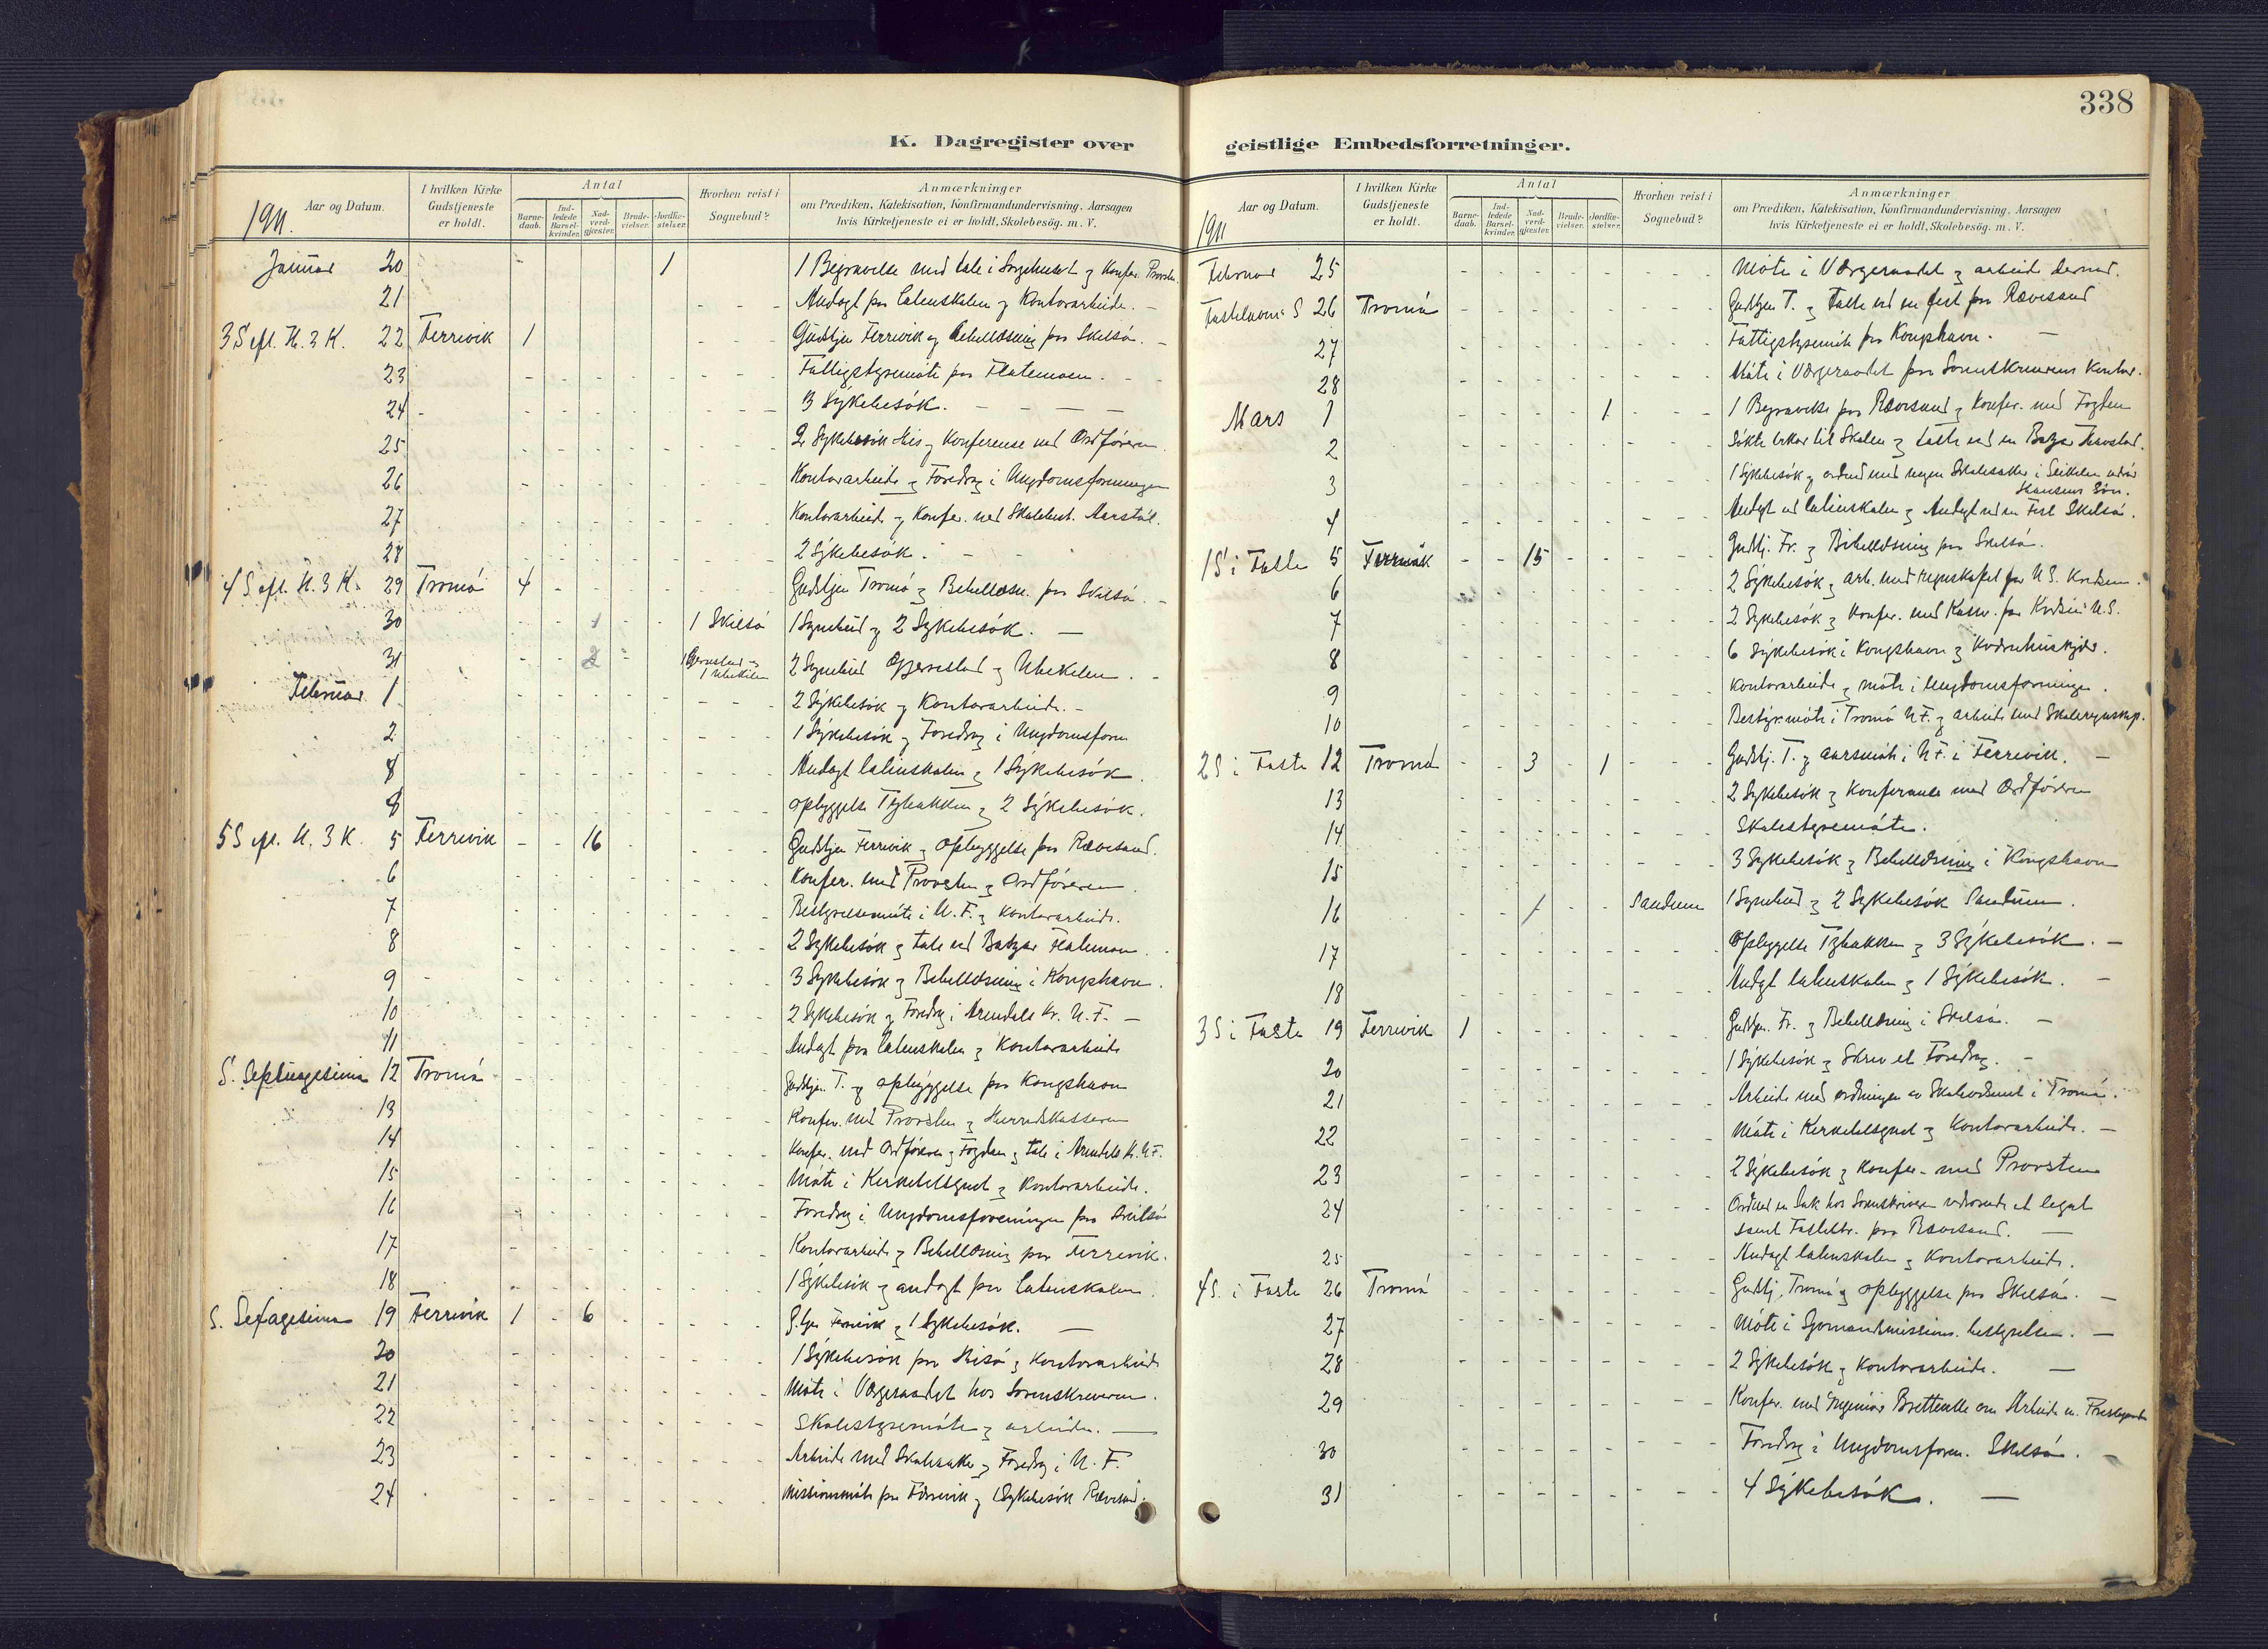 338
K. Dagregister over
geistlige Embedsforretninger.
1911.
Aar og Datum.
I hvilken Kirke Gudstjeneste er holdt.
Antal
Barnedaab.
Indledede Barselkvinder.
Nadverdgjæster.
Brudevielser.
Jordfæstelser.
Hvorhen reist i Sognebud?
Anmærkninger
om Prædiken, Katekisation, Konfirmandundervisning, Aarsagen
hvis Kirketjeneste ei er holdt, Skolebesög. m. V.
Januar 20 1 1 Begravelse med tale i Sørgehuset og Konfer. Provsten.
21 Andagt paa latinskolen og Kontorarbeide. -
3 S eft. H. 3 K. 22 Færrvik 1 Gudstjen Færrvik og Bibellæsning paa Skilsø. -
23 Fattigstyremøte paa Flatemoen.
24 3 Sykebesøk.
25 2 Sykebesøk His og Konferense med Ordføreren
26 Kontorarbeide og Foredrag i Ungdomsforeningen
27 Kontorarbeide og Konfer. med
28 2 Sykebesøk.
4 S eft. H. 3 K. 29 Tromø 4 Gudstjen Tromø og Bibellæsn. paa Skilsø. -
30 1 1 Skilsø 1 Sognebud og 2 Sykebesøk. -
31 2 1 Gjervestad og 1 Ubekilen 2 Sognebud Gjervestad og Ubekilen. -
Februar 1 2 Sykebesøk og Kontorarbeide. -
2 1 Sykebesøk og Foredrag i Ungdomsforen
Andagt latinskolen og 1 Sykebesøk.
opbyggelse Tybakken og 2 Sykebesøk.
5 S eft. H. 3 K. 5 Færrvik 16 Gudstjen Færrvik og opbyggelse paa Rævesand.
6 Konfer. med Provsten og Ordføreren.
7 Bestyrelsesmøte i U. F. og Kontorarbeide.
8 2 Sykebesøk og tale ved Basar
9 3 Sykebesøk og Bibellæsning i Kongshavn.
10 2 Sykebesøk og Foredrag i Arendals Kr. U. F. -
11 Andagt paa latinskolen og Kontorarbeide
S. Septuagesima 12 Tromø Gudstjen. T. og opbyggelse paa Kongshavn
13 Konfer. med Provsten og Herredskassereren
14 Konfer. med Ordføreren og Fogden og tale i Arendals K. U. F.
15 Møte i Kirketilsynet og Kontorarbeide.
16 Foredrag i Ungdomsforeningen paa Skilsø
17 Kontorarbeide og Bibellæsning paa Færrvik.
18 1 Sykebesøk og andagt paa latinskolen.
S. Sexagesima 19 Færrvik 1 6 G.tjen Færrvik og 1 Sykebesøk. -
20 1 Sykebesøk paa Hisø og Kontorarbeide
21 Møte i Vergeraadet hos Sorenskriveren.
22 Skolestyremøte og arbeide. -
23 Arbeide med Skolesaker og Foredrag i U. F.
24 Missionsmøte paa Færrvik og 1 Sykebesøk Rævesand.
1911
Aar og Datum.
I hvilken Kirke Gudstjeneste er holdt.
Antal
Barnedaab.
Indledede Barselkvinder.
Nadverdgjæster.
Brudevielser.
Jordfæstelser.
Hvorhen reist i Sognebud?
Anmærkninger
om Prædiken, Katekisation, Konfirmandundervisning, Aarsagen
hvis Kirketjeneste ei er holdt, Skolebesög. m. V.
Februar 25 Møte i Vergeraadet og arbeide dermed.
Fastelavns S 26 Tromø Gudstjen T. og talte ved en fest paa Rævesand
27 Fattigstyremøte paa Kongshavn. -
28 Møte i Vergeraadet paa Sorenskriverens Kontor.
Mars 1 1 1 Begravelse paa Rævesand og Konfer. med Fogden
2 til Skolen og talte ved en Basar
3 1 Sykebesøk og
Hansens Søn.
4 Andagt ved latinskolen og Andagt ved en Fest Skilsø.
1 S i Faste 5 Færrvik 15 Gudstj. Fr. og Bibellæsning paa Skilsø.
6 2 Sykebesøk og arb. med regnskapet for U. S. Kredsen.
7 2 Sykebesøk og Konfer. med Kasser. for Kredsen U. S.
8 6 Sykebesøk i Kongshavn og
9 Kontorarbeide og møte i Ungdomsforeningen.
10 Bestyr.møte i Tromø U.F. og arbeide med Skoleregnskap.
2 S i Faste 12 Tromø 3 1 Gudstj. T. og aarsmøte i U.F. i Færrvik. -
13 2 Sykebesøk og Konferanse med Ordføreren
14 Skolestyremøte.
15 3 Sykebesøk og Bibellæsning i Kongshavn
16 1 Sandum 1 Sognebud og 2 Sykebesøk Sandum.
17 Opbyggelse Tybakken og 3 Sykebesøk. -
18 Andagt latinskolen og 1 Sykebesøk. -
3 S i Faste 19 Færrvik 1 Gudstjen. Fr. og Bibellæsning i Skilsø. -
20 1 Sykebesøk og Skrev et Foredrag. -
21 Arbeide med ordningen av Skolevæsenet i Tromø.
22 Møte i Kirketilsynet og Kontorarbeide. -
23 2 Sykebesøk og Konfer. med Provsten
24 Ordnet en Sak hos Sorenskriveren vedrørende et legat
samt paa Rævesand. -
25 Andagt latinskolen og Kontorarbeide.
4 S. i Faste 26 Tromø Gudstj. Tromø og opbyggelse paa Skilsø. -
27 Møte i Sjømandsmissions. bestyrelsen. -
28 2 Sykebesøk og Kontorarbeide. -
29 Konfer. med Ingeniør om Arbeide
30 Foredrag i Ungdomsforen. Skilsø. -
31 4 Sykebesøk. -